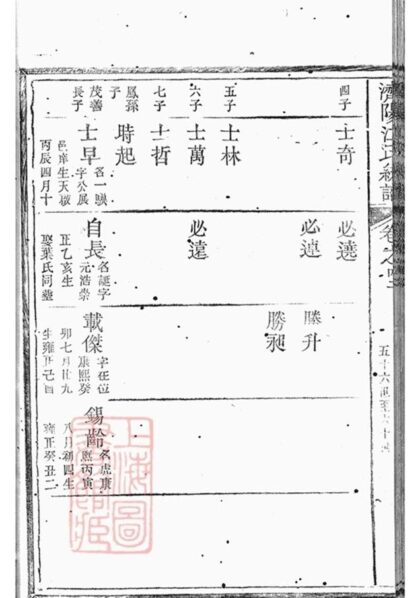 濟陽江氏統譜
卷之四
五十六
四子 士奇 必遶
必連 勝升
勝昶
五子 士林
六子 士萬 必遠
七子 士哲
鳳孫子 時起
茂善長子 士早 名一 字公展 邑庠生天啟丙辰四月十
自長 名誕字元浩崇正乙亥生娶葉氏同塟
載傑 字在位康熙癸卯七月廿九生雍正己酉
錫齡 名虎康熙丙寅八月初四生雍正癸丑二
上海圖